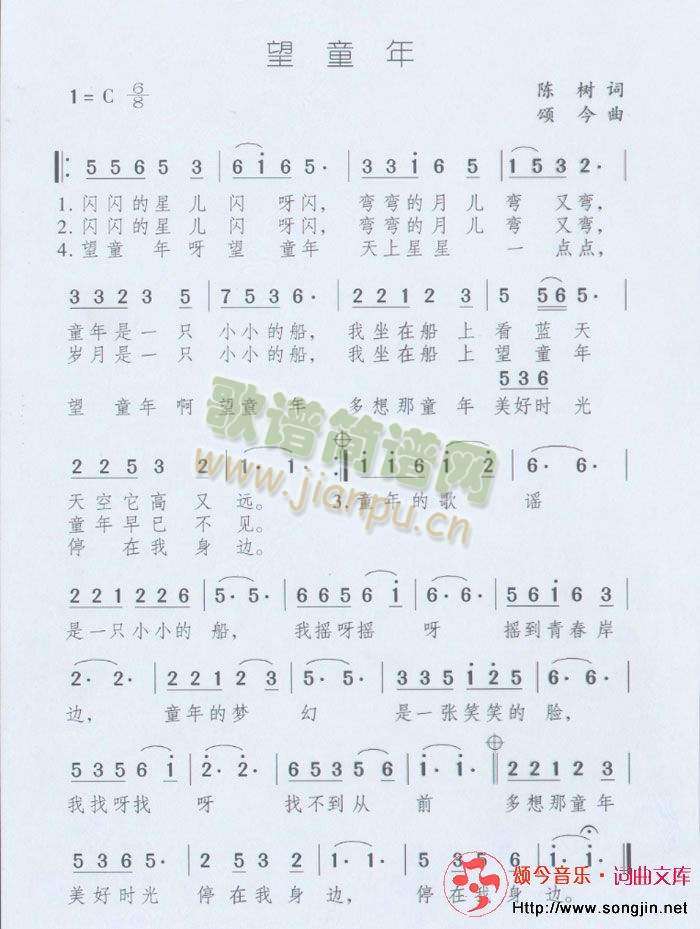 望童年
1=C 6/8
陈树词
颂今曲
5 5 6 5 3 | 6 i 6 5· | 3 3 1 6 5 | 1 5 3 2· |
1.闪闪的星儿闪呀闪，弯弯的月儿弯又弯，
2.闪闪的星儿闪呀闪，弯弯的月儿弯又弯，
4.望童年呀望童年天上星星一点点，
3 3 2 3 5 | 7 5 3 6· | 2 2 1 2 3 | 5 5 6 5· |
童年是一只小小的船，我坐在船上看蓝天
岁月是一只小小的船，我坐在船上望童年
5 3 6
望童年啊望童年多想那童年美好时光
2 2 5 3 2 | 1· 1· :‖ i i 6 i 2 | 6· 6· |
天空它高又远。3.童年的歌谣
童年早已不见。
停在我身边。
2 2 1 2 2 6 | 5· 5· | 3 6 5 6 i | 6· 6· | 5 6 1 6 3 |
是一只小小的船，我摇呀摇呀摇到青春岸
2· 2· | 2 2 1 2 3 | 5· 5· | 3 3 5 i 2 5 | 6· 6· |
边，童年的梦幻是一张笑笑的脸，
5 3 5 6 i | 2· 2· | 6 5 3 5 6 | i· i· ‖ 2 2 1 2 3 |
我找呀找呀找不到从前多想那童年
5 3 6 5· | 2 5 3 2 | 1· 1· | 5 3 5 6 | i· i· ‖
美好时光停在我身边，停在我身边。
歌谱简谱网
www.jianpu.cn
颂今音乐·词曲文库
Http://www.songjin.net